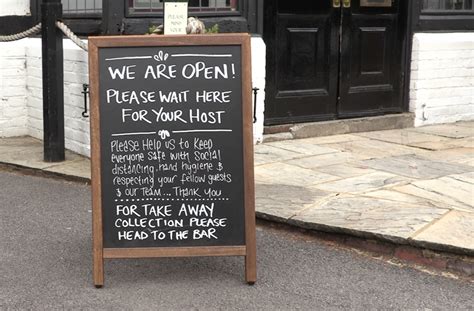 WE ARE OPEN!
PLEASE WAIT HERE
FOR YOUR HOST
PLEASE HELP US TO KEEP
everyone safe with social
distancing, hand hygiene &
respecting your fellow guests
& our team... Thank you
FOR TAKE AWAY
COLLECTION PLEASE
HEAD TO THE BAR